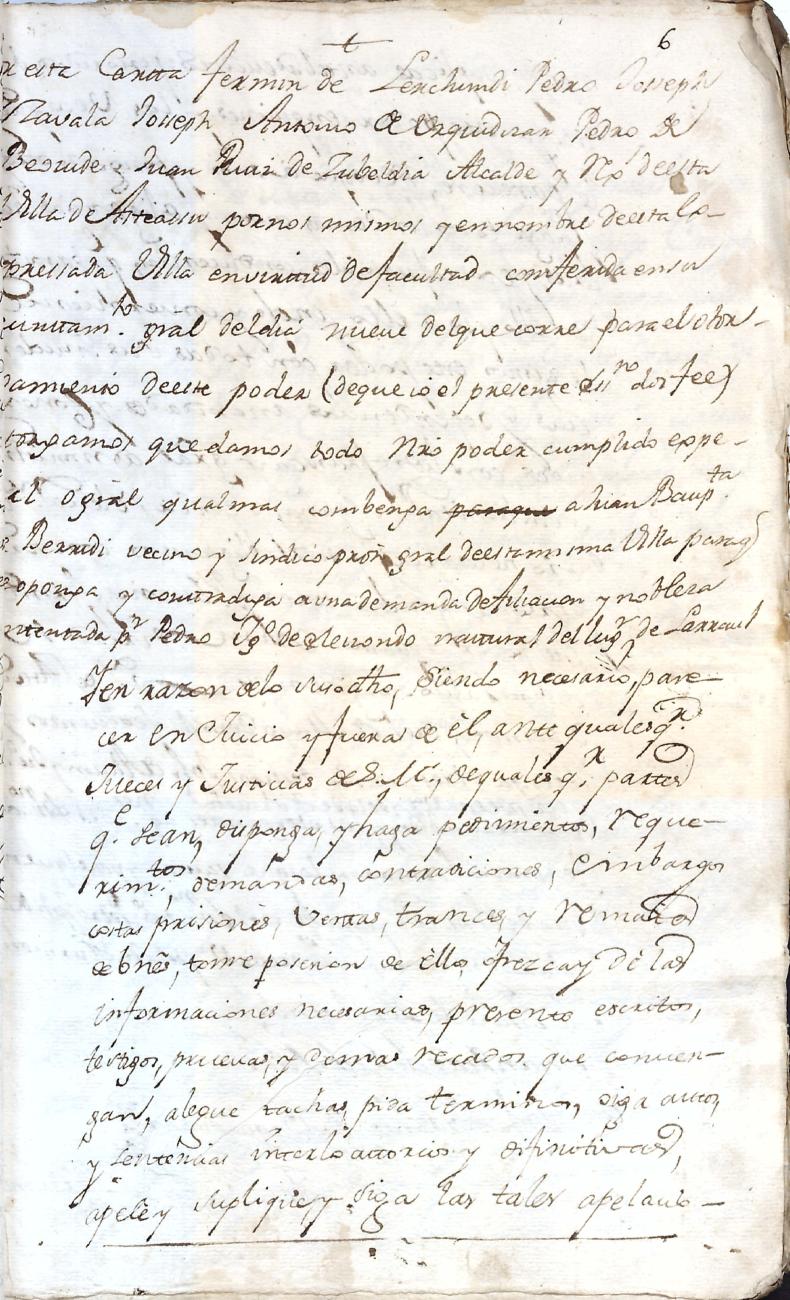 6
esta Cartta fermin de Lerchundi Pedro Joseph
Zavala Joseph Antonio de Urquidizar Pedro de
Juan Ruiz de Zubeldia Alcalde y Rexr de esta
Villa de Asteassu pornos mismos y en nombre de esta Ex-
pressada Villa en virttud de facultad comferida en su
gral del dia nueve del que corre para el otor-
gamiento de este poder (de que io el presente essno doi fee)
otorgamos que damos todo Nro poder cumplido espe-
cial o gral qual mas combenga paraque a Juan Baupta
de Berridi vecino y sindico pror gral de esta misma Villa para q
oponga y contradiga a una demanda de filiacion y nobleza
intentada pr Pedro Igo de natural del lugr de Larraul
Yen razon delo susodho, siendo necesario, pare-
cer en Juicio y fuera de èl, ante qualesqr
Jueces y Justicias de S. M., de quales qr partes
qe sean, disponga, y haga pedimientos, reque-
rimtos, demandas, contradiciones, embargos
costas prisiones, ventas, trances, y remates
de bnes, tome posesion de èllos, ofrezca y dè las
informaciones necesarias, presente escritos,
testigos, pruevas, y demas recados que conven-
gan, alegue tachas, pida terminos, oiga autos,
y sentencias interlocutorias y difinitivas,
apele y suplique, y siga las tales apelacio-